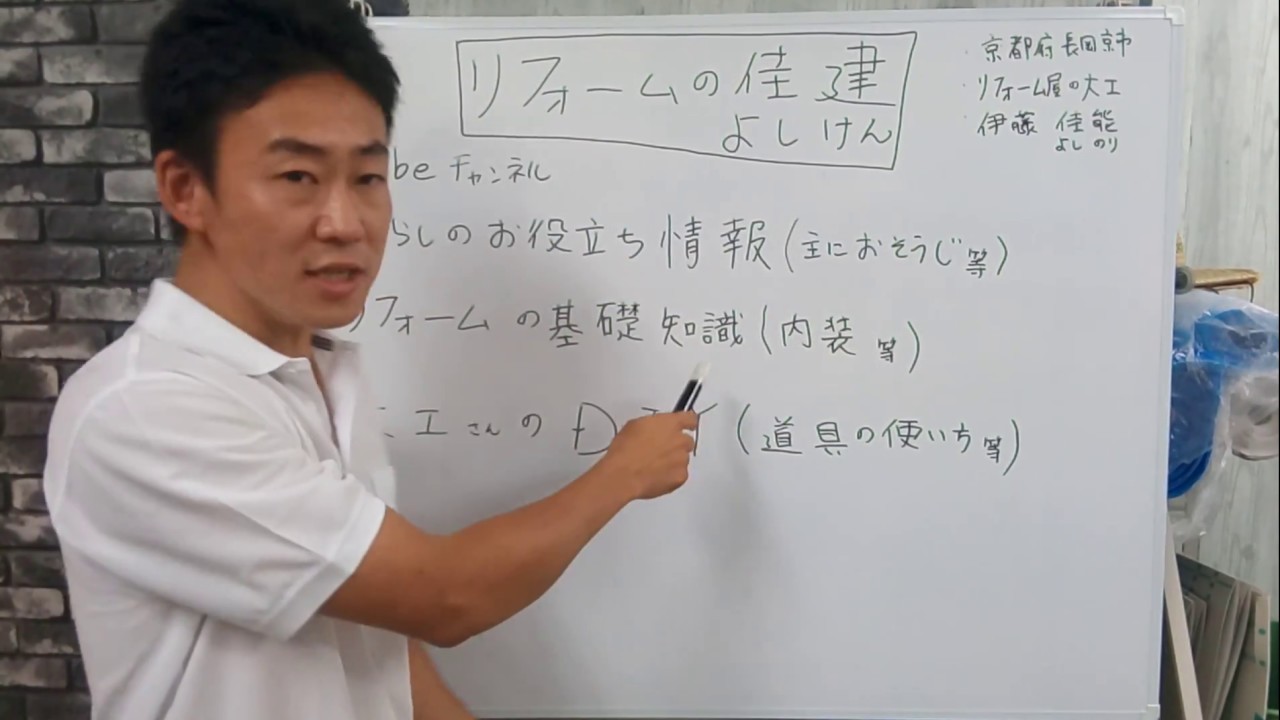 リフォームの佳建
よしけん
・京都府長岡京市
・リフォーム屋の大工
・伊藤 佳能
よしのり
be チャンネル
らしのお役立ち情報(主におそうじ等)
リフォームの基礎知識(内装 等)
工さんのDIY(道具の使い方等)